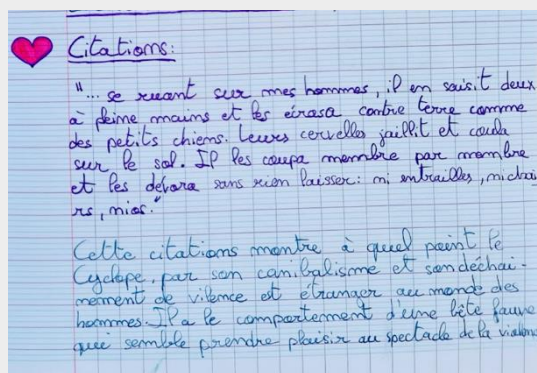 Citations:
"... se ruant sur mes hommes, il en saisit deux
à pleine mains et les écrasa contre terre comme
des petits chiens. Leurs cervelles jaillit et coula
sur le sol. Il les coupa membre par membre
et les dévora sans rien laisser: ni entrailles, ni chai
rs, ni os."
Cette citations montre à quel point le
Cyclope, par son canibalisme et son déchai-
nement de vilence est étranger au monde des
hommes. Il a le comportement d'une bête fauve
qui semble prendre plaisir au spectacle de la